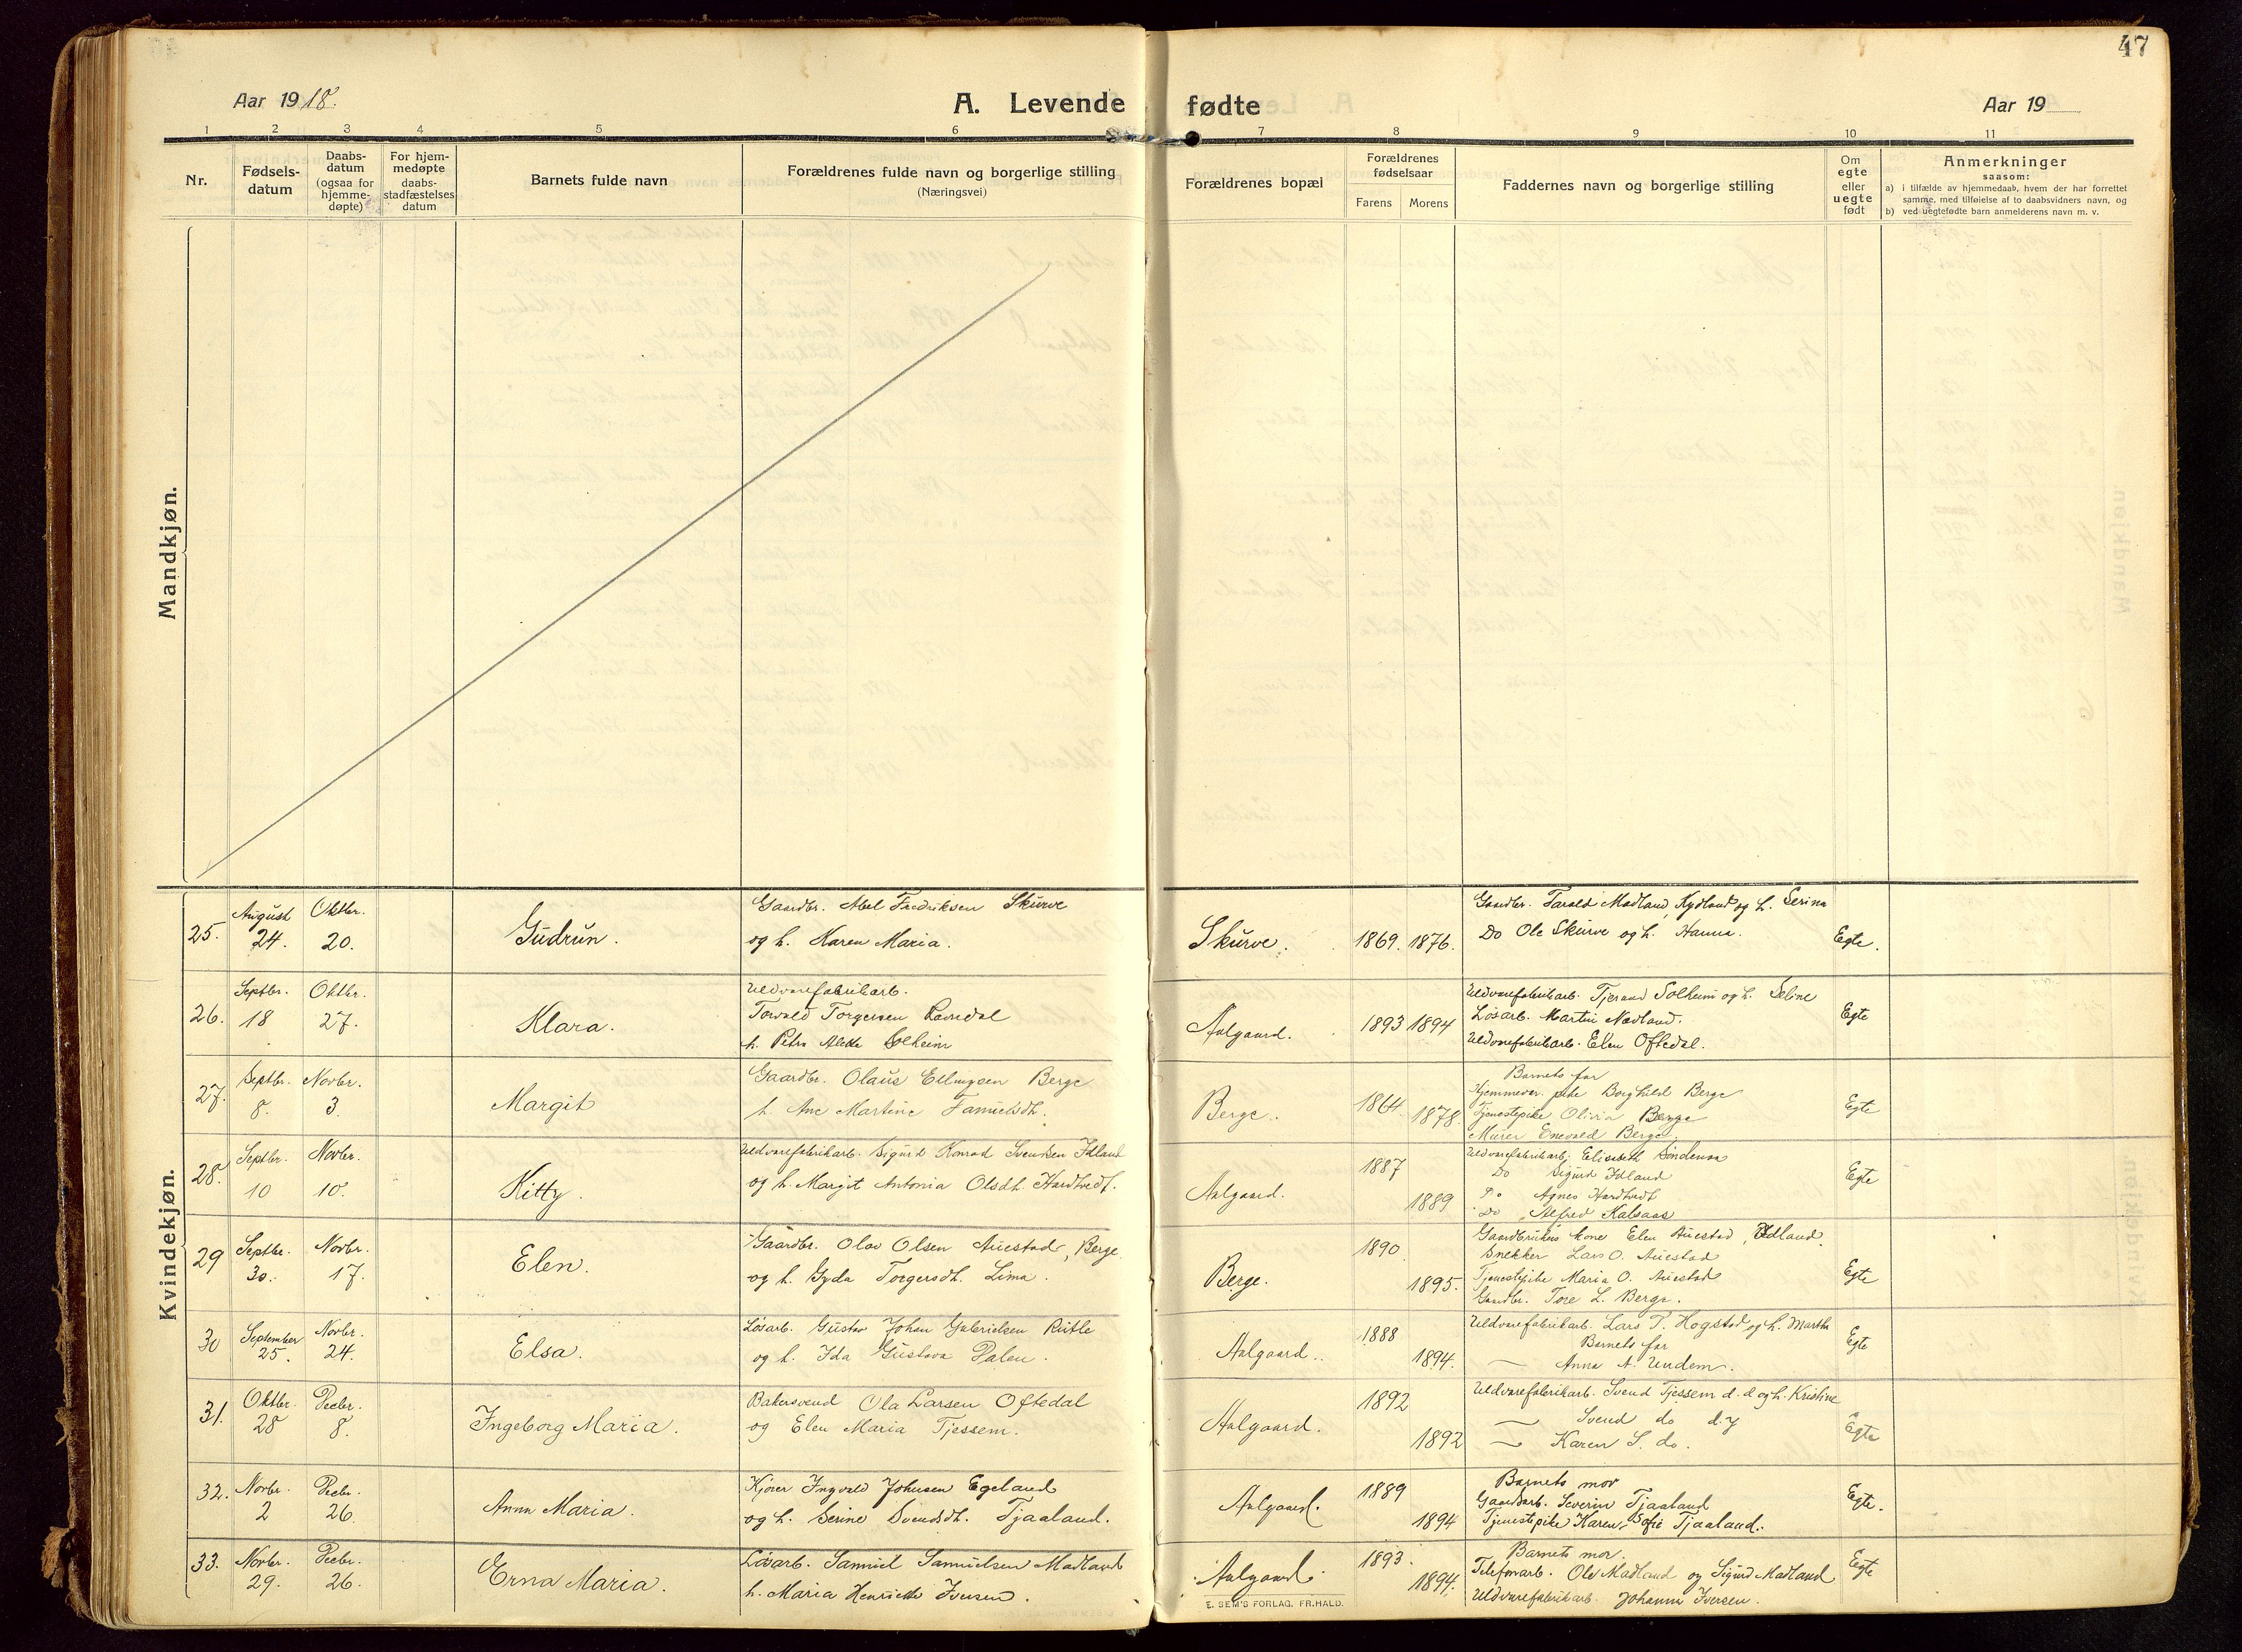 47
Aar 1918.
A. Levende fødte
Aar 19
1 2 3 4 5 6 7 8 9 10 11
Nr.
Fødsels-
datum
Daabs-
datum
(ogsaa for
hjemme-
døpte)
For hjem-
medøpte
daabs-
stadfæstelses
datum
Barnets fulde navn
Forældrenes fulde navn og borgerlige stilling
(Næringsvei)
Forældrenes bopæl
Forældrenes
fødselsaar
Farens Morens
Faddernes navn og borgerlige stilling
Om
egte
eller
uegte
født
Anmerkninger
saasom:
a) i tilfælde av hjemmedaab, hvem der har forrettet
samme, med tilføielse af to daabsvidners navn, og
b) ved uegtefødte barn anmelderens navn m. v.
Mandkjøn.
Kvindekjøn.
25. August 24. Oktbr. 20.
Gudrun.
Gaardbr. Abel Fredriksen Skurve
og h. Karen Maria.
Skurve. 1869. 1876.
Gaardbr. Tarald Madland, Kydland og h. Serina
Do Ole Skurve og h. Hanna.
Egte.
26. Septbr. 18 Oktbr. 27.
Klara.
Uldvarefabrikarb.
Torvald Torgersen Ravndal
h. Petra Alette Solheim
Aalgaard. 1893 1894
Uldvarefabrikarb. Tjerand Solheim og h. Seline
Løsarb. Martin Nedland.
Uldvarefabrikarb. Elen Oftedal.
Egte
27. Septbr. 8. Novbr. 3.
Margit
Gaardbr. Olaus Ellingsen Berge
h. Ane Martine Danielsdh.
Berge. 1864 1878.
Barnets far
Hjemmevær. pike Borghild Berge
Tjenestepike Olivia Berge
Murer Enevald Berge.
Egte
28. Septbr. 10 Novbr. 10.
Kitty.
Uldvarefabrikarb. Sigurd Konrad Svendsen Idland
og h. Margit Antonia Olsdh. Hardtvedt.
Aalgaard. 1887 1889
Uldvarefabrikarb. Elisabeth Søndenaa
Do Sigurd Idland
Do Agnes Hardtvedt
Do Alfred Kalsaas
Egte
29 Septbr. 30. Novbr. 17.
Elen.
Gaardbr. Olav Olsen Auestad, Berge
og h. Gyda Torgersdh. Lima.
Berge. 1890. 1895.
Gaardbrukers kone Elen Auestad, Edland.
Snekker Lars O. Auestad
Tjenestepike Maria O. Auestad
Gaardbr. Tore L. Berge.
Egte
30 September 25. Novbr. 24.
Elsa.
Løsarb. Gustav Johan Gabrielsen Rutle
og h. Ida Gustava Dalen.
Aalgaard. 1888 1894.
Uldvarefabrikarb. Lars T. Hogstad og h. Martha
Barnets far
— Anna A. Undem.
Egte
31. Oktbr. 28 Decbr. 8.
Ingeborg Maria.
Bakersvend Ola Larsen Oftedal
og Elen Maria Tjessem.
Aalgaard. 1892 1892
Uldvarefabrikarb. Svend Tjessem d. e og h. Kristine
— Svend do d. y
— Karen S. do.
Egte
32. Novbr. 2 Decbr. 26.
Anna Maria.
Kjører Ingvald Johnsen Egeland
og h. Serine Svendsdh. Tjaaland.
Aalgaard. 1889 1894
Barnets mor
Gaardsarb. Severin Tjaaland
Tjenestepike Karen Sofie Tjaaland.
Egte.
33. Novbr. 29. Decbr. 26.
Erna Maria.
Løsarb. Samuel Samuelsen Madland
h. Maria Henriette Iversen.
Aalgaard. 1893. 1894.
Barnets mor.
Telefonarb. Ole Madland og Sigurd Madland
Uldvarefabrikarb. Johanne Iversen.
Egte
E. SEM'S FORLAG, FR.HALD.